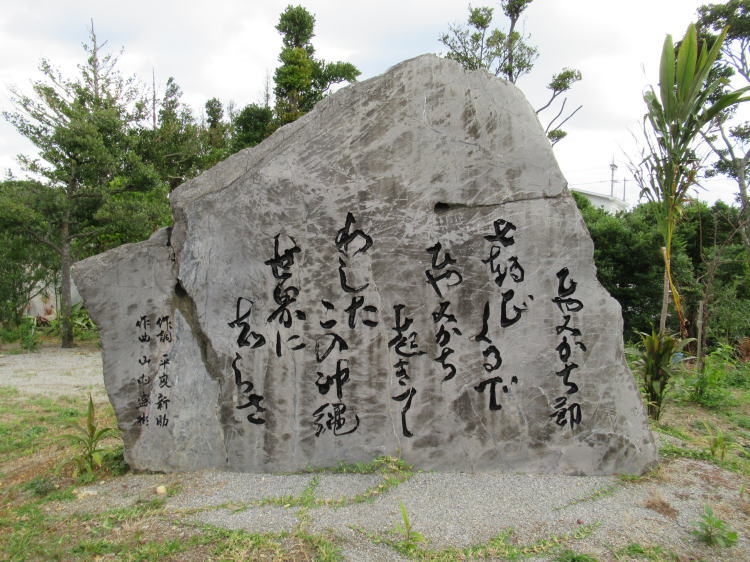 ひやみかち節
七転び
くるで
ひやみかち
起きて
わした
この沖縄
世界に
知らさ
作詞 平良新助
作曲 山内盛彬